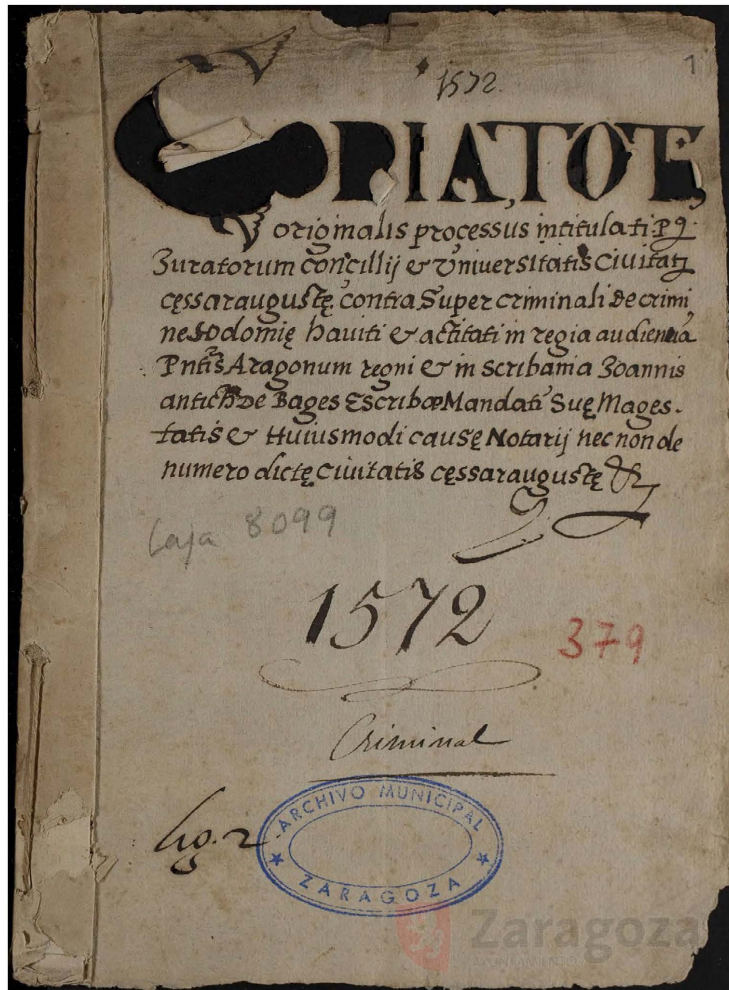 1
1572.
COPIA TOTꝭ
originalis processus intitulati P
Juratorum concillij & Vniuersitatis Ciuitatꝭ
cęssaraugustę contra Super criminali De crimi
ne Sodomię hauiti & actitati in regia audiencia
Pntis Aragonum regni & in scribania Joannis
antich De Bages Escribæ Mandati Suę Mages-
tatis & Huiusmodi causę Notarij nec non de
numero dictę ciuitatis cęssaraugustę &
Caja 8099
1572
379
Criminal
lig. 2
ARCHIVO MUNICIPAL
ZARAGOZA
Zaragoza
AYUNTAMIENTO